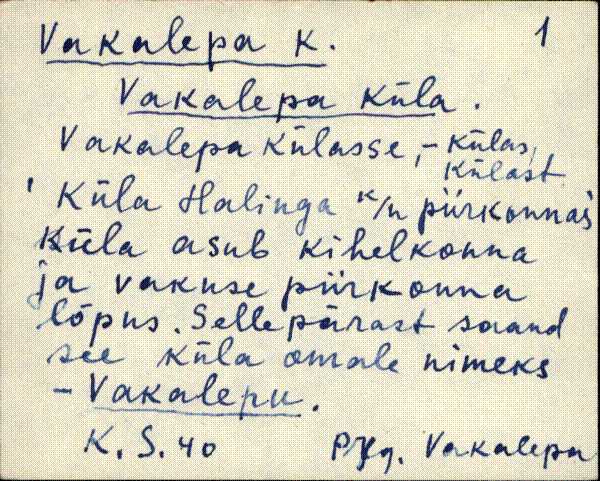 Vakalepa k. 1
Vakalepa küla.
Vakalepa külasse, - külas,
külast
' Küla Halinga k/n piirkonnas
Küla asub kihelkonna
ja vakuse piirkonna
lõpus. Sellepärast saand
see küla omale nimeks
- Vakalepu.
K. S. 40 Vakalepa